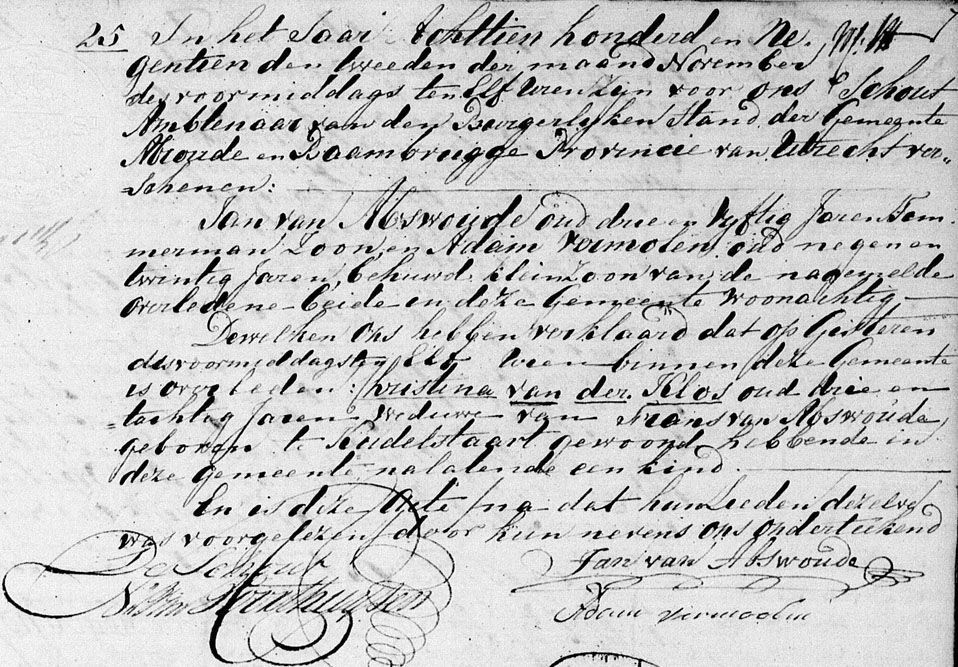 25 In het Jaar Achttien honderd en Ne.
gentien den tweeden der maand November
des voormiddags ten Elf Uren Zijn voor ons Schout
Ambtenaar van den Burgerlyken Stand der Gemeente
Abcoude en Baambrugge Provincie van Utrecht ver„
schenen:
Jan van Abswoude oud drie en Vyftig Jaren Tem„
merman Zoon, en Adam Vermolen, oud negen en
twintig Jaren, behuwd kleinzoon van de nagemelde
overledene beide in deze Gemeente woonachtig
Dewelken Ons hebben verklaard dat op Gisteren
des voormiddags ten Elf Uren binnen deze Gemeente
is overleden: Christina van der Klos oud drie en
tachtig Jaren weduwe van Frans van Abswoude
geboren te Kudelstaart gewoond hebbende in
deze gemeente nalatende een kind.
En is deze Acte /na dat hun Lieden dezelve
was voorgelezen/ door hun nevens ons onderteekend
De Schout
Jan van Abswoude
Adam vermoolen